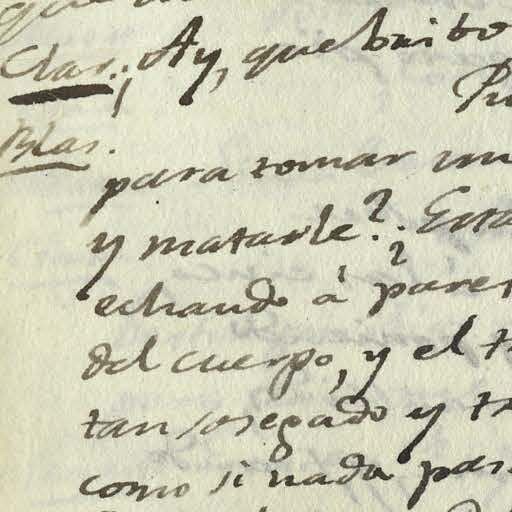 Clar. ¡Ay, que bruto
Blas.
para tomar un
y matarle?
echando á
del cuerpo, y el
tan sosegado y
como si nada